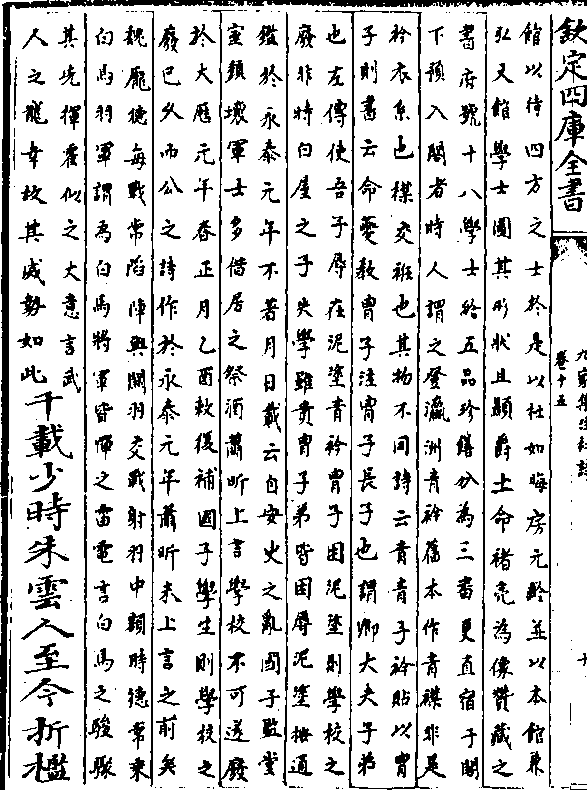 欽定四庫全書
卷十五
館以待四方之士於是以杜如晦房元齡並以本館兼
弘文館學士圖其形狀且顯爵土命褚亮為像贊藏之
書府號十八學士給五品珍膳分為三番更直宿于閣
下預入閣者時人謂之登瀛洲青衿舊本作青襟非是
衿衣系也襟交袵也其物不同詩云青青子衿貼以胄
子則書云命夔教胄子注胄子長子也謂卿大夫子弟
也左傳使吾子辱在泥塗青衿胄子困泥塗則學校之
廢非特白屋之子失學雖貴胄子弟皆困辱泥塗按通
鑑於永泰元年不著月日載云自安史之亂國子監堂
室頹壞軍士多借居之祭酒蕭昕上言學校不可遂廢
於大厯元年春正月乙酉敕復補國子學生則學校之
廢已久而公之詩作於永泰元年蕭昕未上言之前矣
魏龐徳每戰常陷陣與關羽交戰射羽中額時德常乗
白馬羽軍謂為白馬將軍皆憚之雷電言白馬之駿驟
其光揮霍似之大意言武
人之寵幸故其威勢如此千載少時朱雲人至今折檻